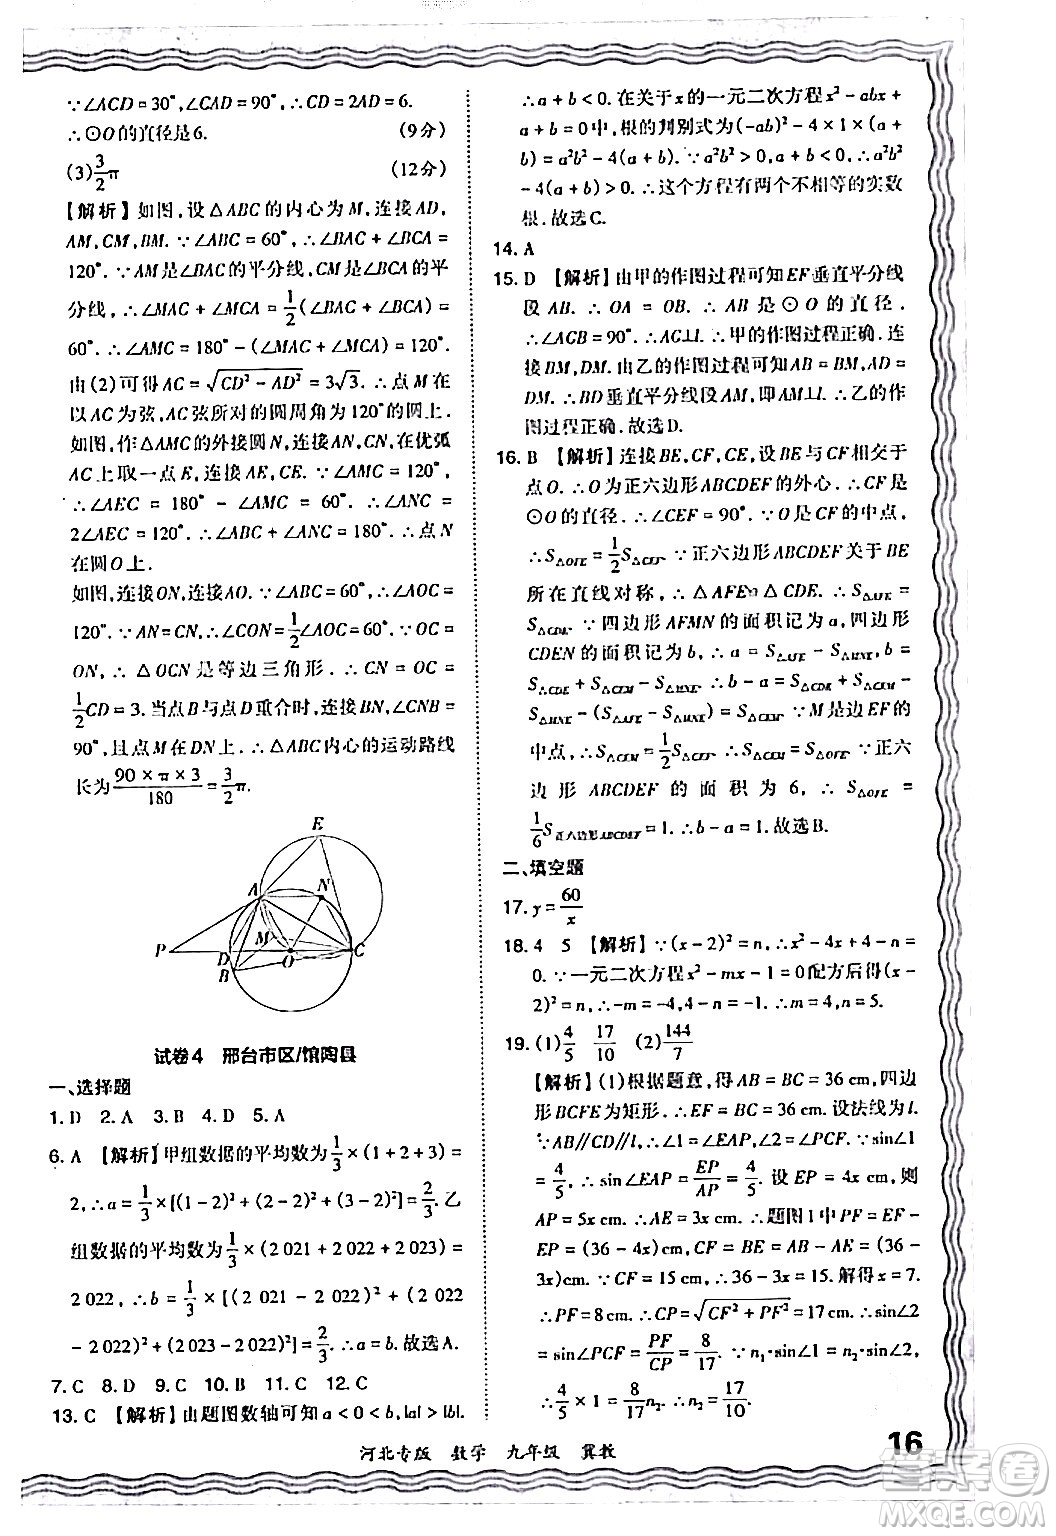 ∵∠ACD=30°,∠CAD=90°,∴CD=2AD=6.
∴⊙O的直径是6. (9分)
(3)3/2π (12分)
【解析】如图,设△ABC的内心为M,连接AD,
AM,CM,BM.∵∠ABC=60°,∴∠BAC+∠BCA=
120°.∵AM是∠BAC的平分线,CM是∠BCA的平
分线,∴∠MAC+∠MCA=1/2(∠BAC+∠BCA)=
60°.∴∠AMC=180°-(∠MAC+∠MCA)=120°.
由(2)可得AC=√(CD²-AD²)=3√3.∴点M在
以AC为弦,AC弦所对的圆周角为120°的圆上.
如图,作△AMC的外接圆N,连接AN,CN,在优弧
AC上取一点E,连接AE,CE.∵∠AMC=120°,
∴∠AEC=180°-∠AMC=60°.∴∠ANC=
2∠AEC=120°.∴∠ABC+∠ANC=180°.∴点N
在圆O上.
如图,连接ON,连接AO.∵∠ABC=60°,∴∠AOC=
120°.∵AN=CN,∴∠CON=1/2∠AOC=60°.∵OC=
ON,∴△OCN是等边三角形.∴CN=OC=
1/2CD=3.当点B与点D重合时,连接BN,∠CNB=
90°,且点M在DN上.∴△ABC内心的运动路线
长为(90×π×3)/180=3/2π.
E
A
N
M
P
D
O
C
B
试卷4 邢台市区/馆陶县
一、选择题
1.D 2.A 3.B 4.D 5.A
6.A 【解析】甲组数据的平均数为1/3×(1+2+3)=
2,∴a=1/3×[(1-2)²+(2-2)²+(3-2)²]=2/3.乙
组数据的平均数为1/3×(2 021+2 022+2 023)=
2 022,∴b=1/3×[(2 021-2 022)²+(2 022
-2 022)²+(2 023-2 022)²]=2/3.∴a=b.故选A.
7.C 8.D 9.C 10.B 11.C 12.C
13.C 【解析】由题图数轴可知a<0<b,|a|>|b|.
∴a+b<0.在关于x的一元二次方程x²-abx+
a+b=0中,根的判别式为(-ab)²-4×1×(a+
b)=a²b²-4(a+b).∵a²b²>0,a+b<0,∴a²b²
-4(a+b)>0.∴这个方程有两个不相等的实数
根.故选C.
14.A
15.D 【解析】由甲的作图过程可知EF垂直平分线
段AB.∴OA=OB.∴AB是⊙O的直径.
∴∠ACB=90°.∴AC⊥l.∴甲的作图过程正确.连
接BM,DM.由乙的作图过程可知AB=BM,AD=
DM.∴BD垂直平分线段AM,即AM⊥l.∴乙的作
图过程正确.故选D.
16.B 【解析】连接BE,CF,CE,设BE与CF相交于
点O.∴O为正六边形ABCDEF的外心.∴CF是
⊙O的直径.∴∠CEF=90°.∵O是CF的中点,
∴S△OFE=1/2S△CEF.∵正六边形ABCDEF关于BE
所在直线对称,∴△AFE≌△CDE.∴S△AFE=
S△CDE.∵四边形AFMN的面积记为a,四边形
CDEN的面积记为b,∴a=S△AFE-S△MNE,b=
S△CDE+S△CEM-S△MNE.∴b-a=S△CDE+S△CEM-
S△MNE-(S△AFE-S△MNE)=S△CEM.∵M是EF的
中点,∴S△CEM=1/2S△CEF.∴S△CEM=S△OFE.∵正六
边形ABCDEF的面积为6,∴S△OFE=
1/6S正六边形ABCDEF=1.∴b-a=1.故选B.
二、填空题
17.y=60/x
18.4 5 【解析】∵(x-2)²=n,∴x²-4x+4-n=
0.∵一元二次方程x²-mx-1=0配方后得(x-
2)²=n,∴-m=-4,4-n=-1.∴m=4,n=5.
19.(1)4/5 17/10 (2)144/7
【解析】(1)根据题意,得AB=BC=36 cm,四边
形BCFE为矩形.∴EF=BC=36 cm.设法线为l.
∵AB∥CD∥l,∴∠1=∠EAP,∠2=∠PCF.∵sin∠1
=4/5,∴sin∠EAP=EP/AP=4/5.∴设EP=4x cm,则
AP=5x cm.∴AE=3x cm.∴题图1中PF=EF-
EP=(36-4x)cm,CF=BE=AB-AE=(36-
3x)cm.∵CF=15 cm,∴36-3x=15.解得x=7.
∴PF=8 cm.∴CP=√(CF²+PF²)=17 cm.∴sin∠2
=sin∠PCF=PF/CP=8/17.∵n₁·sin∠1=n₂·sin∠2,
∴4/5×1=8/17×n₂.∴n₂=17/10.
河北专版 数学 九年级 冀教
16
答案圈
MXQE.COM